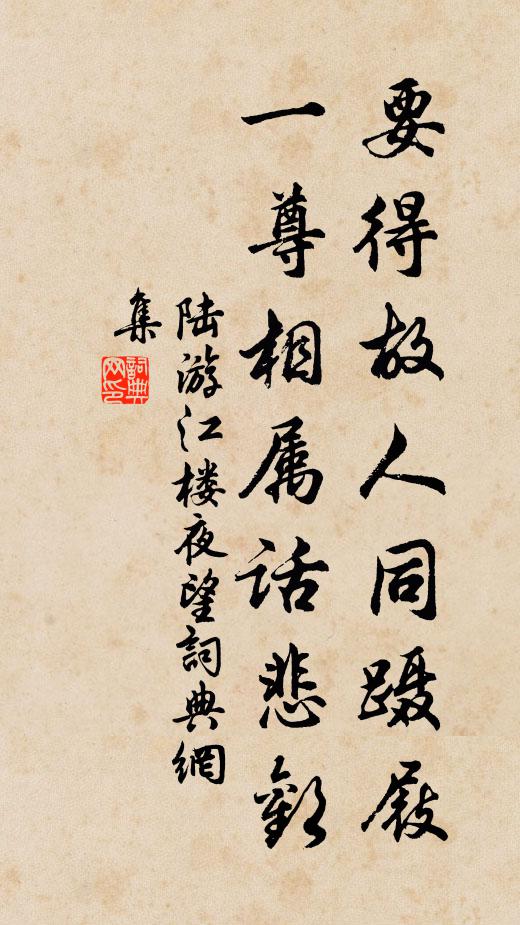 要得故人同蹑屐
一尊相属话悲欢
陆游江楼夜望詞典網
集
詞典网印